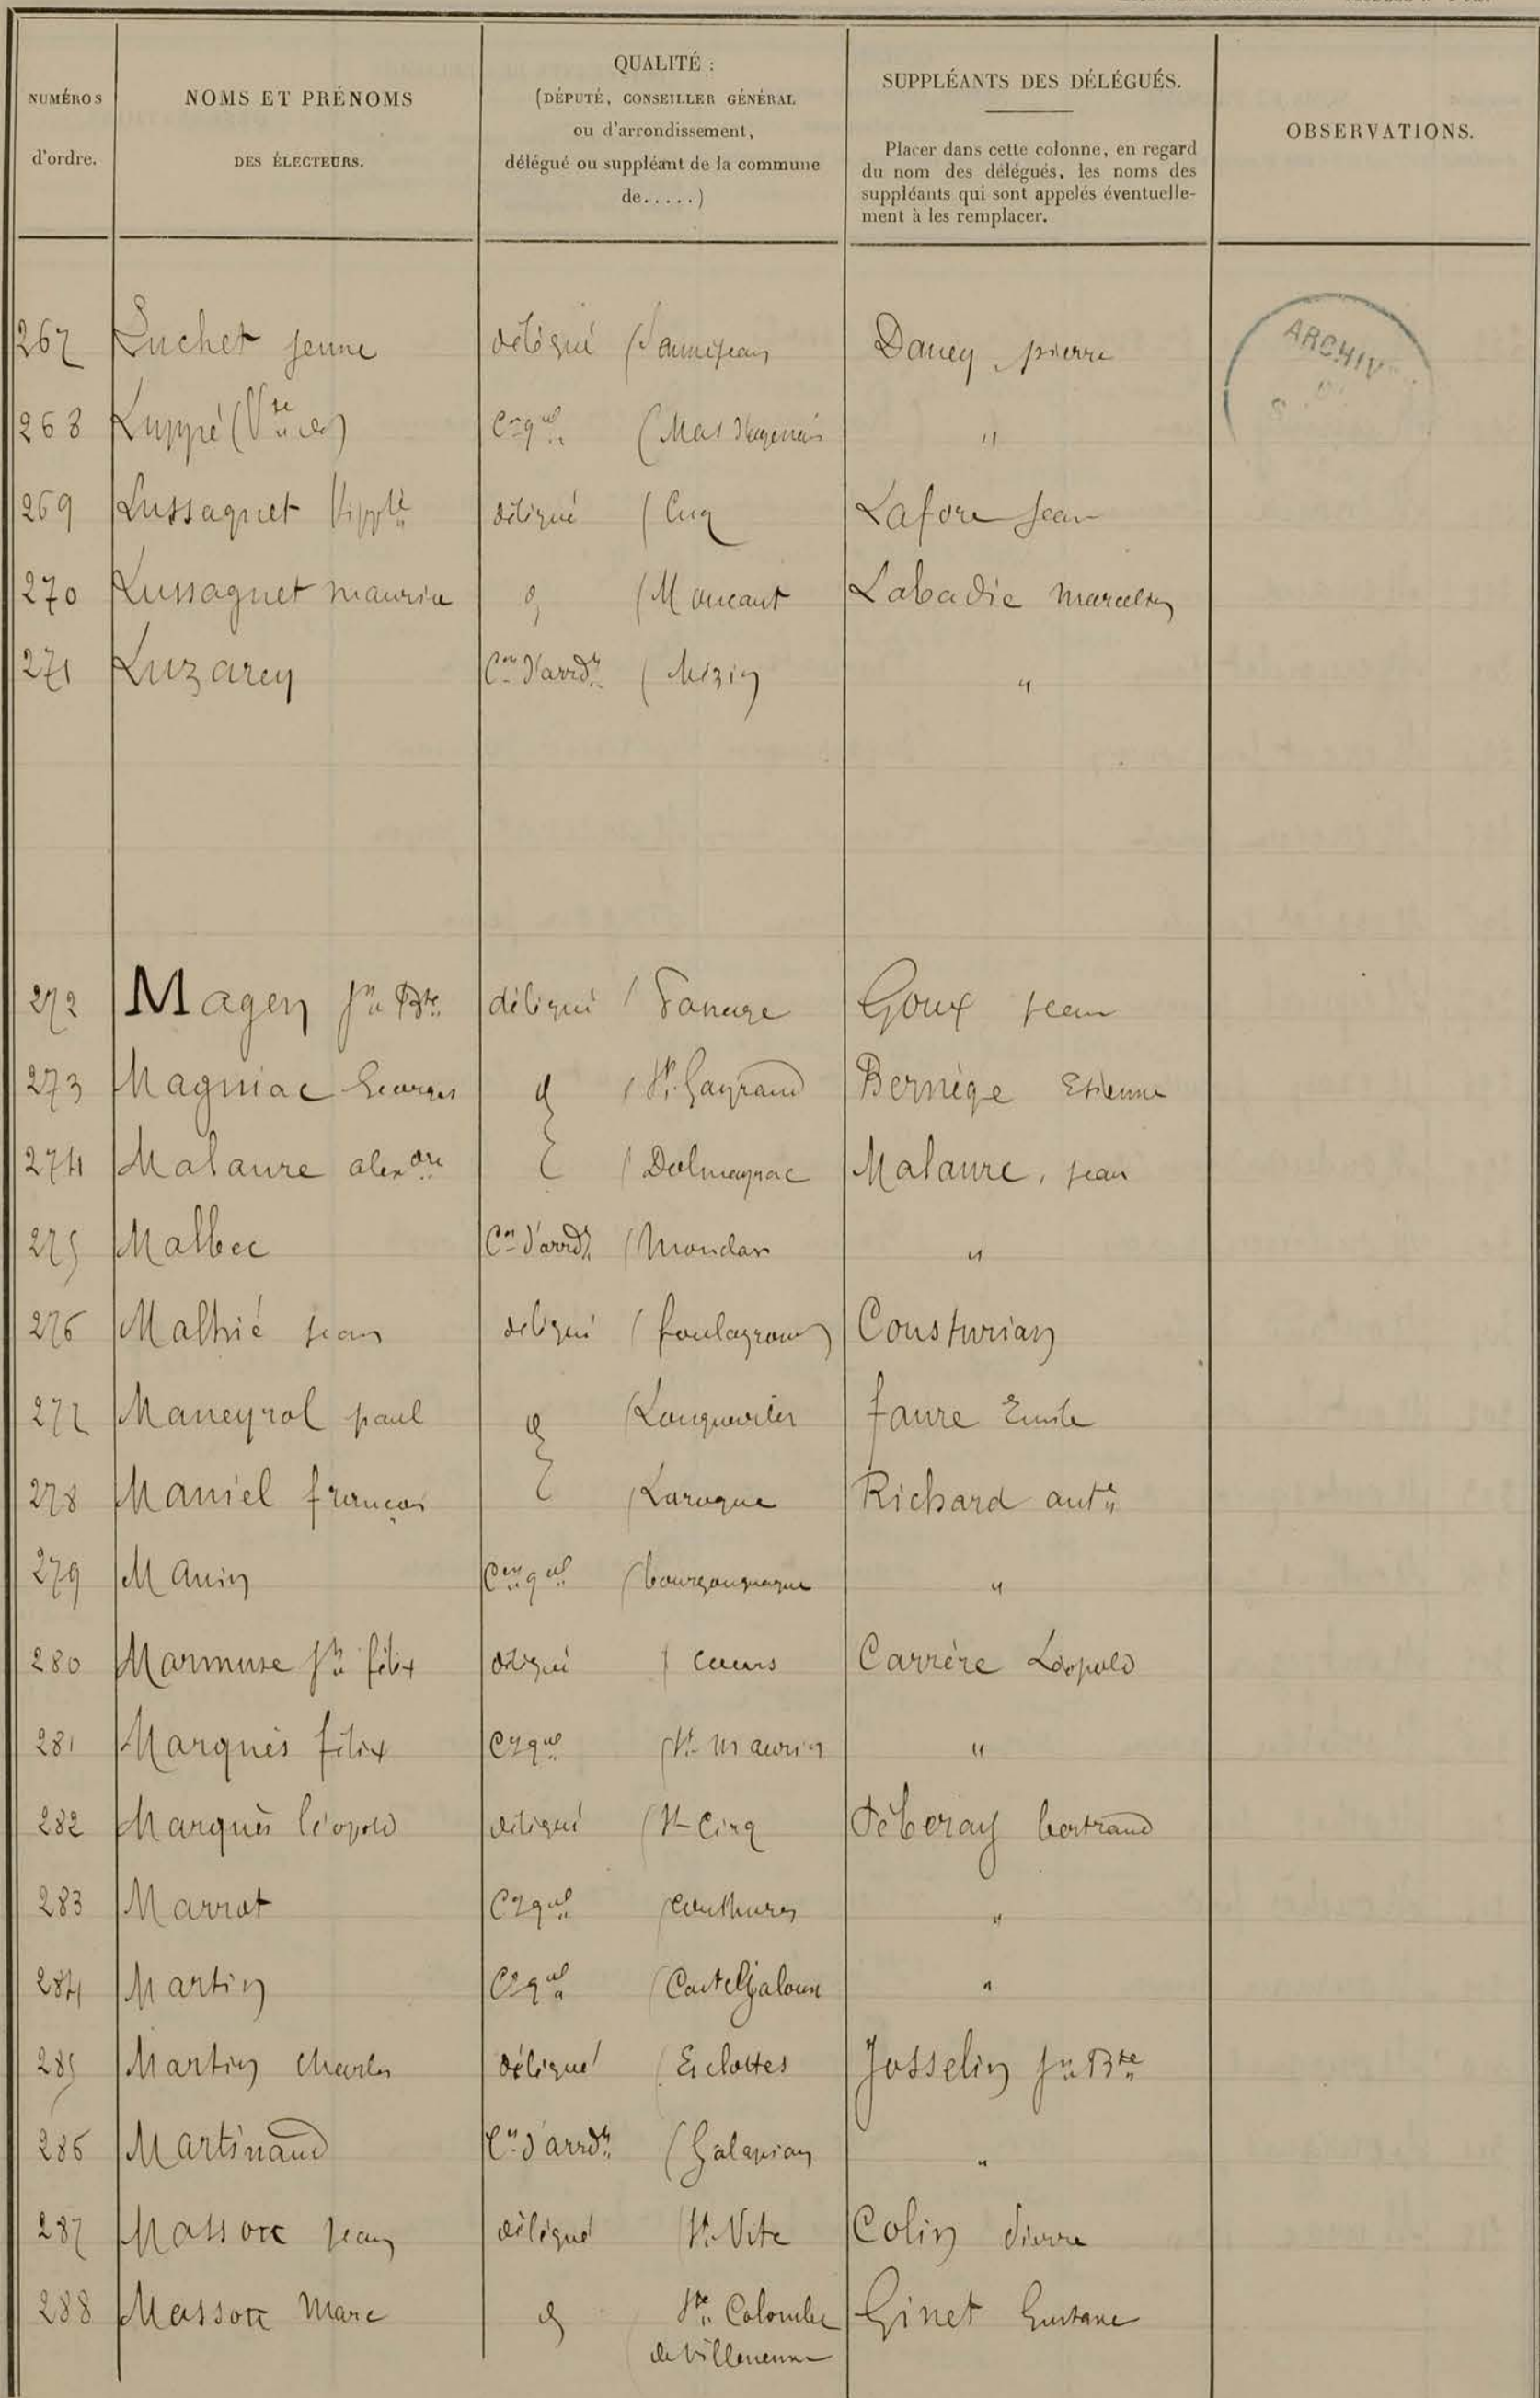 NUMÉROS d'ordre.
NOMS ET PRÉNOMS
DES ÉLECTEURS.
QUALITÉ :
(DÉPUTÉ, CONSEILLER GÉNÉRAL
ou d'arrondissement,
délégué ou suppléant de la commune
de.....)
SUPPLÉANTS DES DÉLÉGUÉS.
Placer dans cette colonne, en regard
du nom des délégués, les noms des
suppléants qui sont appelés éventuelle-
ment à les remplacer.
OBSERVATIONS.
ARCHIV
267 Luchet jeune délégué ( Daney pierre
268 Luppé (Vte de) Cer gal (Mas d'agenais "
269 Lussagnet hippte délégué (Cuq Lafore Jean
270 Lussagnet maurice d (Moncaut Labadie marcelin
271 Luzarey Cer d'arrdt (Mézin "
272 Magen Jn Bte délégué ( Goux jean
273 Magniac Georges d ( Bernège Etienne
274 Malaure alexdre (Dolmayrac Malaure, jean
275 Malbec Cer d'arrdt (Monclar "
276 Malhié jean délégué (foulayronnes Cousturian
277 Maneyrol paul d (Longueville faure Emile
278 Maniel françois (Laroque Richard ante
279 Manin Cer gal (bourgougnague "
280 Marmuse Jn félix délégué ( Carrère Léopold
281 Marquès félix Cer gal (St maurin "
282 Marquès léopold délégué (St Cirq Déberay bertrand
283 Marrot Cer gal (Couthures "
284 Martin Cer gal (Casteljaloux "
285 Martin Charles délégué (Esclottes Josselin Jn Bte
286 Martinaud Cer d'arrdt (Galapian "
287 Massou jean délégué (St Vite Colin Pierre
288 Massou Marc d Ste Colombe Ginet Gustave
de Villeneuve